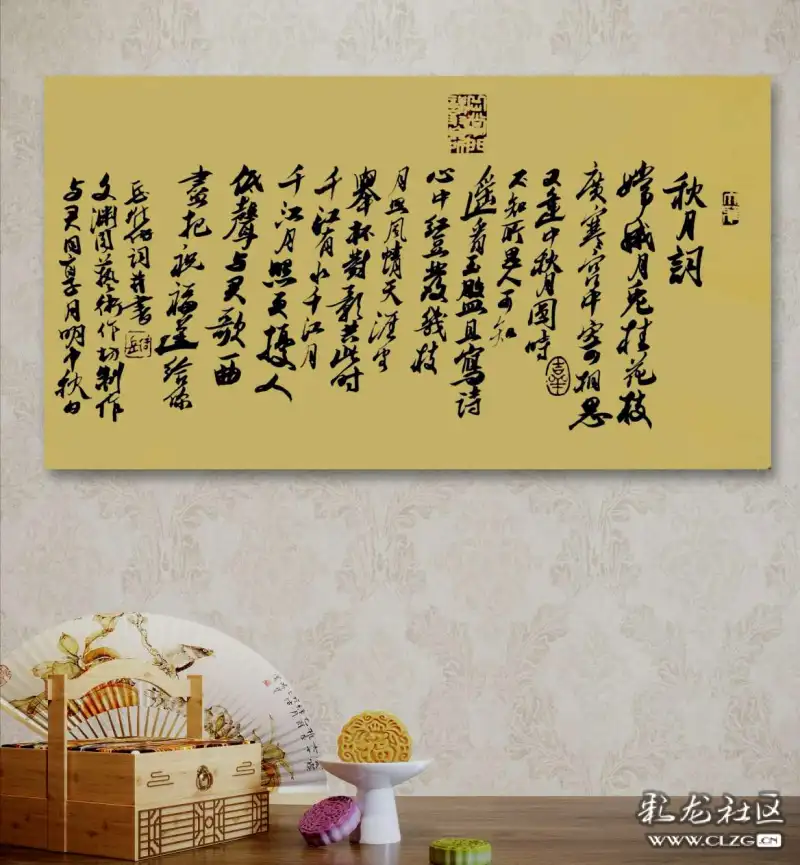 秋月詞
嫦娥月兎桂花枝
廣寒宮中寄相思
又逢中秋月圓時
不知所思人可知
吉羊
遥看玉盤且寫詩
心中紅豆發幾枝
月 風情天涯
舉杯對影共此時
千江有水千江月
千江月照更擾人
低聲与君歌一曲
盡把祝福送給你
詞并書
文渊阁藝術作坊制作
与君同享月明中秋
彩龙社区
WWW.CLZG.CN